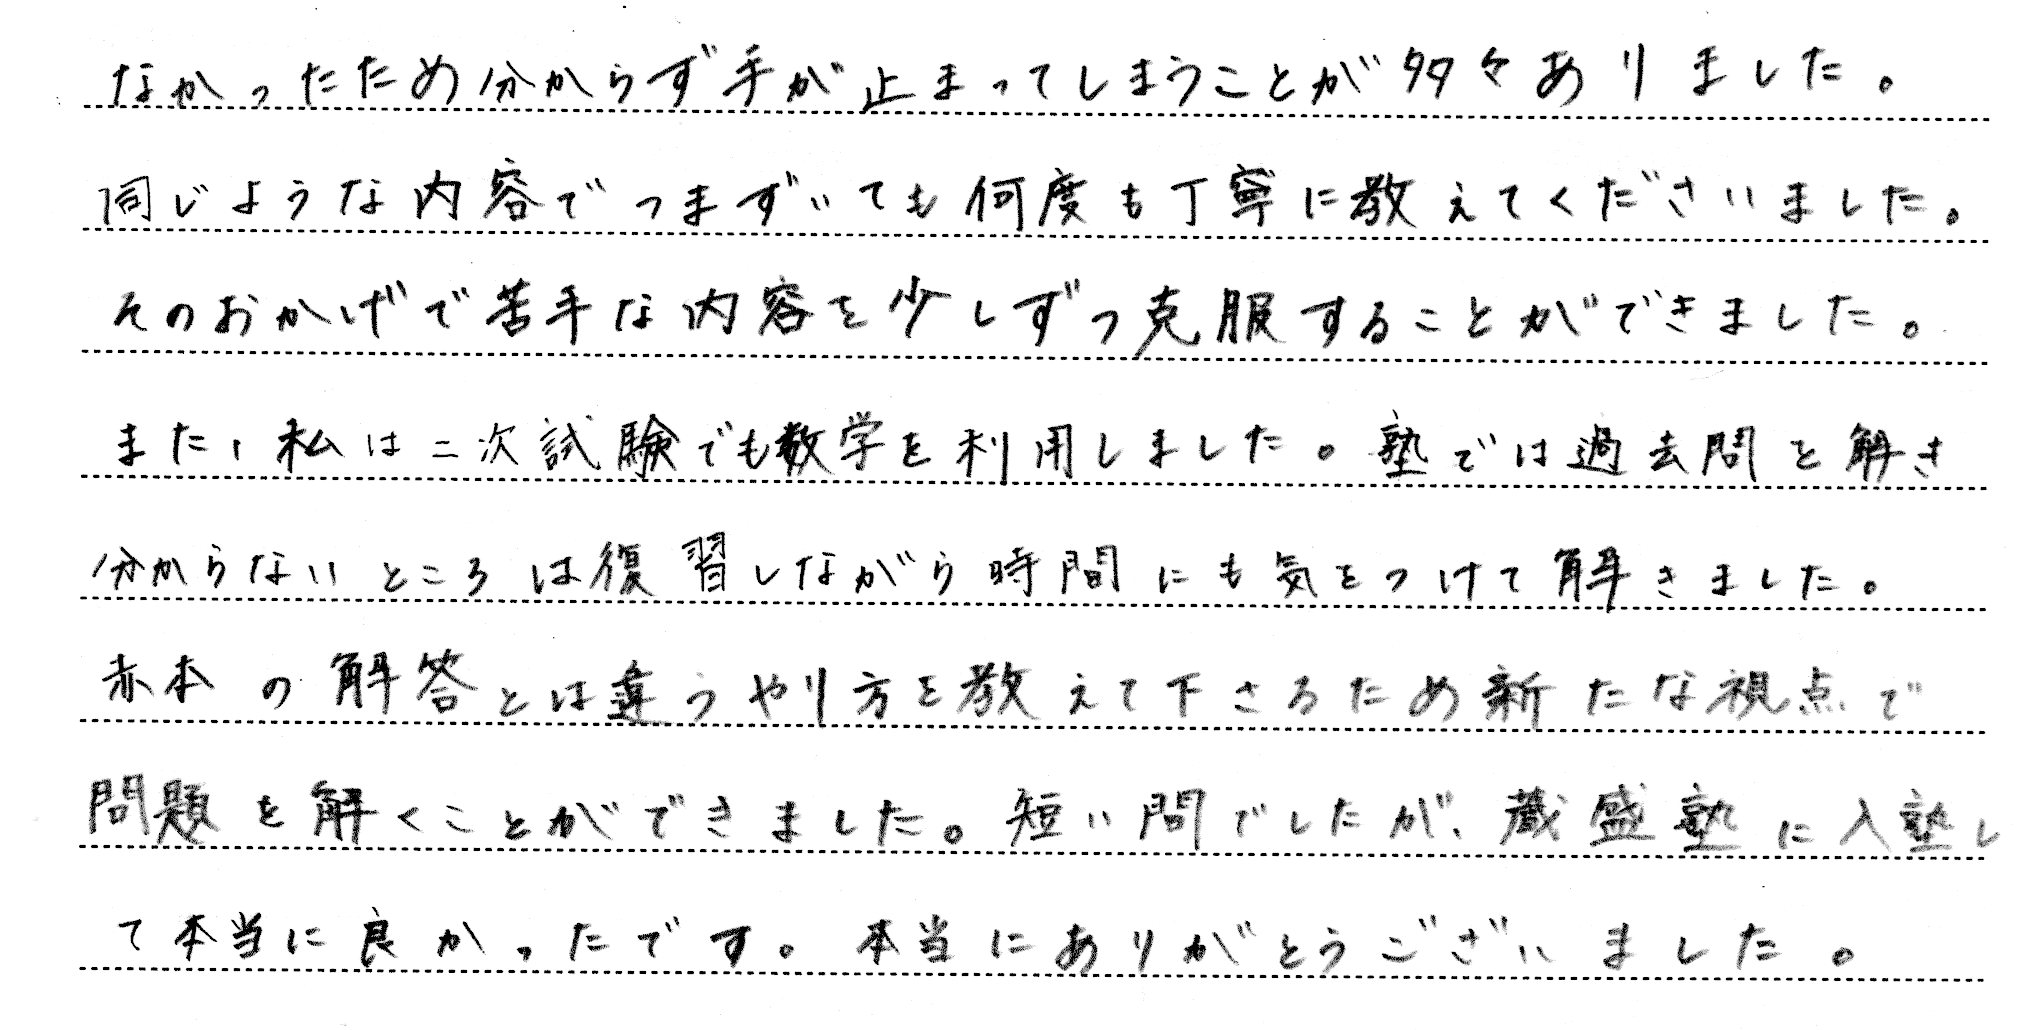 なかったため分からず手が止まってしまうことが多々ありました。
同じような内容でつまずいても何度も丁寧に教えてくださいました。
そのおかげで苦手な内容を少しずつ克服することができました。
また、私は二次試験でも数学を利用しました。塾では過去問を解き
分からないところは復習しながら時間にも気をつけて解きました。
赤本の解答とは違うやり方を教えて下さるため新たな視点で
問題を解くことができました。短い間でしたが、蔵盛塾に入塾し
て本当に良かったです。本当にありがとうございました。